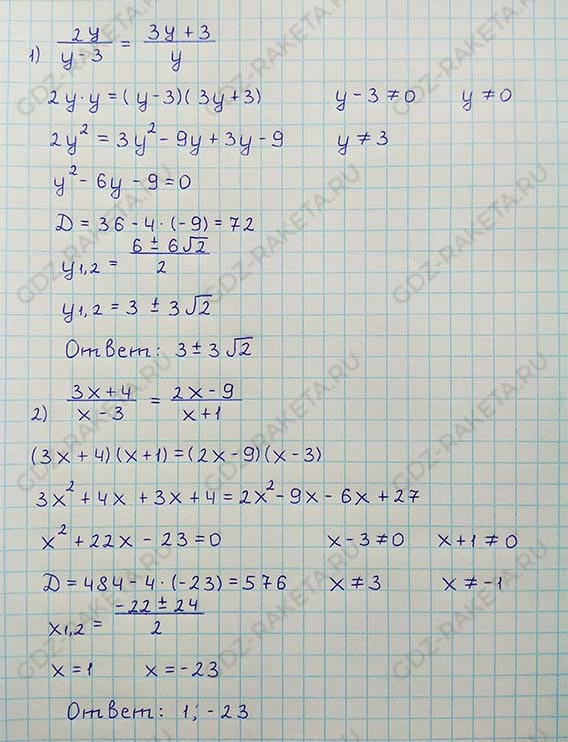 1) 2y / (y - 3) = (3y + 3) / y
2y·y = (y-3)(3y+3) y-3≠0 y≠0
2y² = 3y² - 9y + 3y - 9 y≠3
y² - 6y - 9 = 0
D = 36 - 4·(-9) = 72
y1,2 = (6 ± 6√2) / 2
y1,2 = 3 ± 3√2
Ответ: 3 ± 3√2
2) (3x + 4) / (x - 3) = (2x - 9) / (x + 1)
(3x + 4)(x + 1) = (2x - 9)(x - 3)
3x² + 4x + 3x + 4 = 2x² - 9x - 6x + 27
x² + 22x - 23 = 0 x-3≠0 x+1≠0
D = 484 - 4·(-23) = 576 x≠3 x≠-1
x1,2 = (-22 ± 24) / 2
x = 1 x = -23
Ответ: 1; -23
GDZ-RAKETA.RU